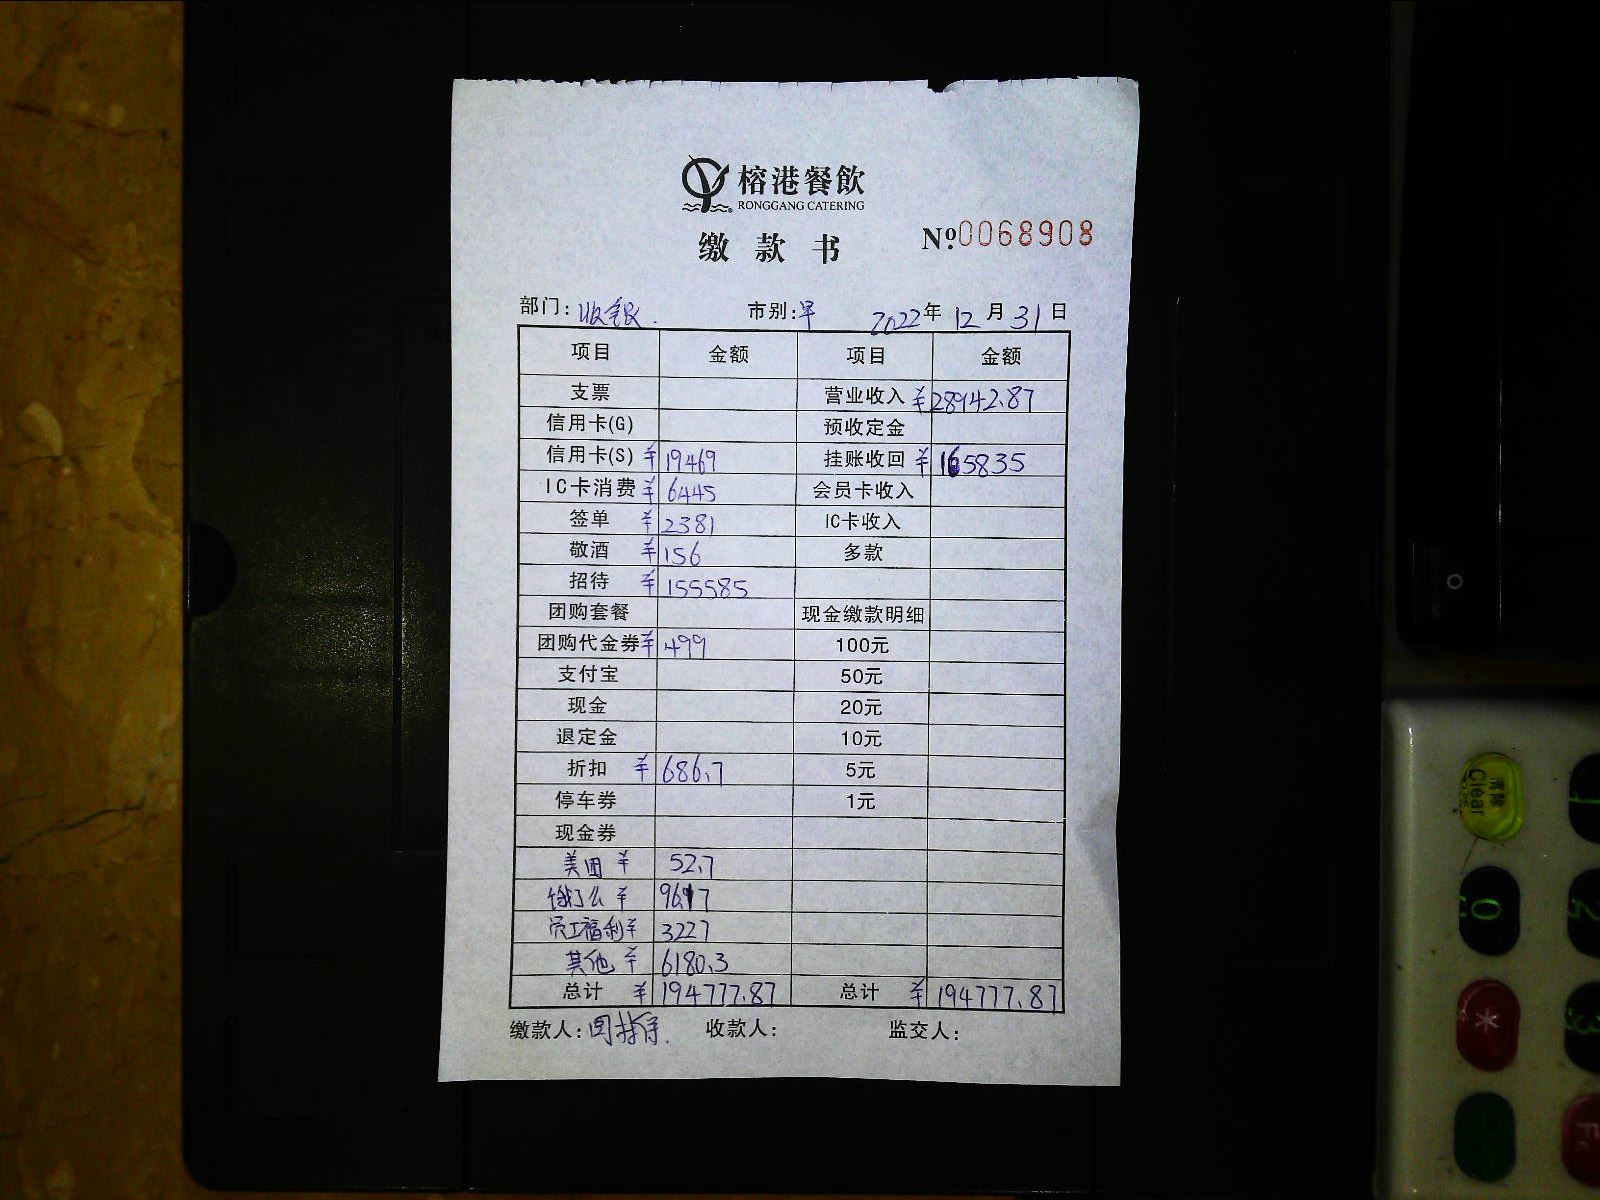 榕港餐飲
RONGGANG CATERING
缴款书 Nº0068908
部门: 收银. 市别: 早 2022年 12月 31日
项目 金额 项目 金额
支票 营业收入 ¥28942.87
信用卡(G) 预收定金
信用卡(S) ¥19469 挂账收回 ¥165835
IC卡消费 ¥6445 会员卡收入
签单 ¥2381 IC卡收入
敬酒 ¥156 多款
招待 ¥155585
团购套餐 现金缴款明细
团购代金券 ¥499 100元
支付宝 50元
现金 20元
退定金 10元
折扣 ¥686.7 5元
停车券 1元
现金券
美团 ¥ 52.7
饿了么 ¥
员工福利 ¥ 3227
其他 ¥ 6180.3
总计 ¥194777.87 总计 ¥194777.87
缴款人: 收款人: 监交人:
清除
Clear
0
2
3
*